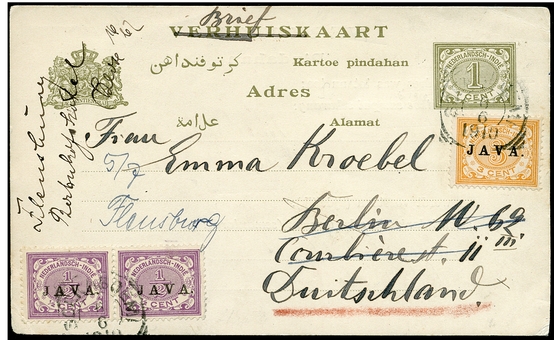 Brief
VERHUISKAART
كرتوفنداهن
Kartoe pindahan
Adres
علامة
Alamat
NEDERLANDSCH-INDIË
1
CENT
6
1910
JAVA.
3 CENT
Frau
Emma Kroebel
5/7
Flensburg
Berlin W. 62
Courbièrestr. 11 III
Duitschland
Flensburg
Bahnhofshotel
NEDERLANDSCH-INDIË
1/2
JAVA.
CENT
NEDERLANDSCH-INDIË
1/2
JAVA.
CENT
6
1910